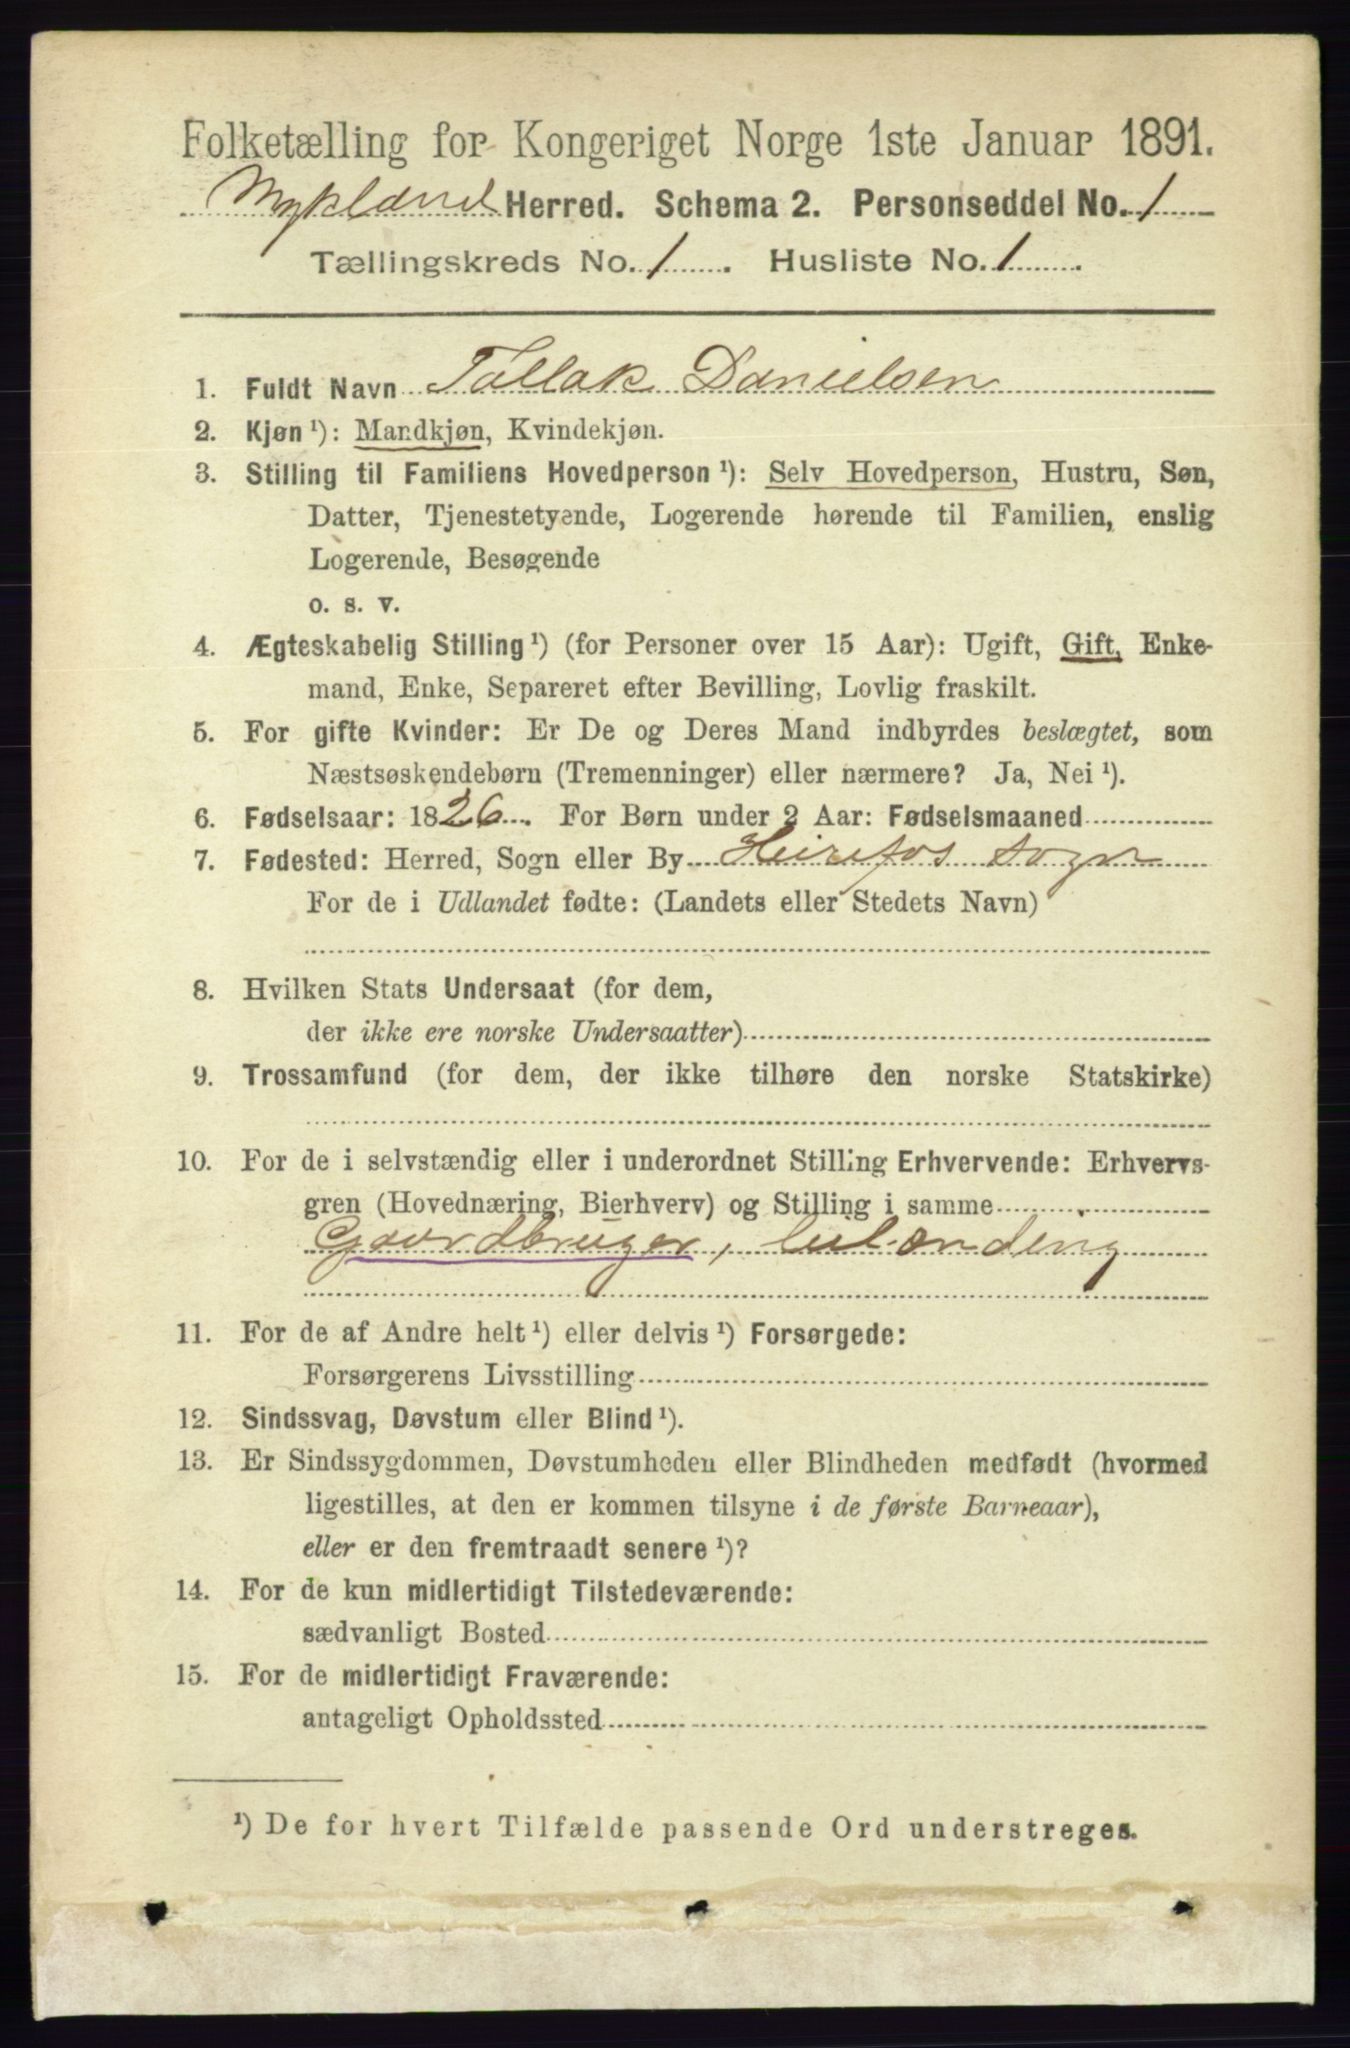 Folketælling for Kongeriget Norge 1ste Januar 1891.
Mykland Herred. Schema 2. Personseddel No. 1
Tællingskreds No. 1. Husliste No. 1.
1. Fuldt Navn Tallak Danielsen
2. Kjøn ¹): Mandkjøn, Kvindekjøn.
3. Stilling til Familiens Hovedperson ¹): Selv Hovedperson, Hustru, Søn,
Datter, Tjenestetyende, Logerende hørende til Familien, enslig
Logerende, Besøgende
o. s. v.
4. Ægteskabelig Stilling ¹) (for Personer over 15 Aar): Ugift, Gift, Enke-
mand, Enke, Separeret efter Bevilling, Lovlig fraskilt.
5. For gifte Kvinder: Er De og Deres Mand indbyrdes beslægtet, som
Næstsøskendebørn (Tremenninger) eller nærmere? Ja, Nei ¹).
6. Fødselsaar: 1826. For Børn under 2 Aar: Fødselsmaaned
7. Fødested: Herred, Sogn eller By Heirefos Sogn
For de i Udlandet fødte: (Landets eller Stedets Navn)
8. Hvilken Stats Undersaat (for dem,
der ikke ere norske Undersaatter)
9. Trossamfund (for dem, der ikke tilhøre den norske Statskirke)
10. For de i selvstændig eller i underordnet Stilling Erhvervende: Erhvervs-
gren (Hovednæring, Bierhverv) og Stilling i samme
Gaardbruger,
11. For de af Andre helt ¹) eller delvis ¹) Forsørgede:
Forsørgerens Livsstilling
12. Sindssvag, Døvstum eller Blind ¹).
13. Er Sindssygdommen, Døvstumheden eller Blindheden medfødt (hvormed
ligestilles, at den er kommen tilsyne i de første Barneaar),
eller er den fremtraadt senere ¹)?
14. For de kun midlertidigt Tilstedeværende:
sædvanligt Bosted
15. For de midlertidigt Fraværende:
antageligt Opholdssted
¹) De for hvert Tilfælde passende Ord understreges.